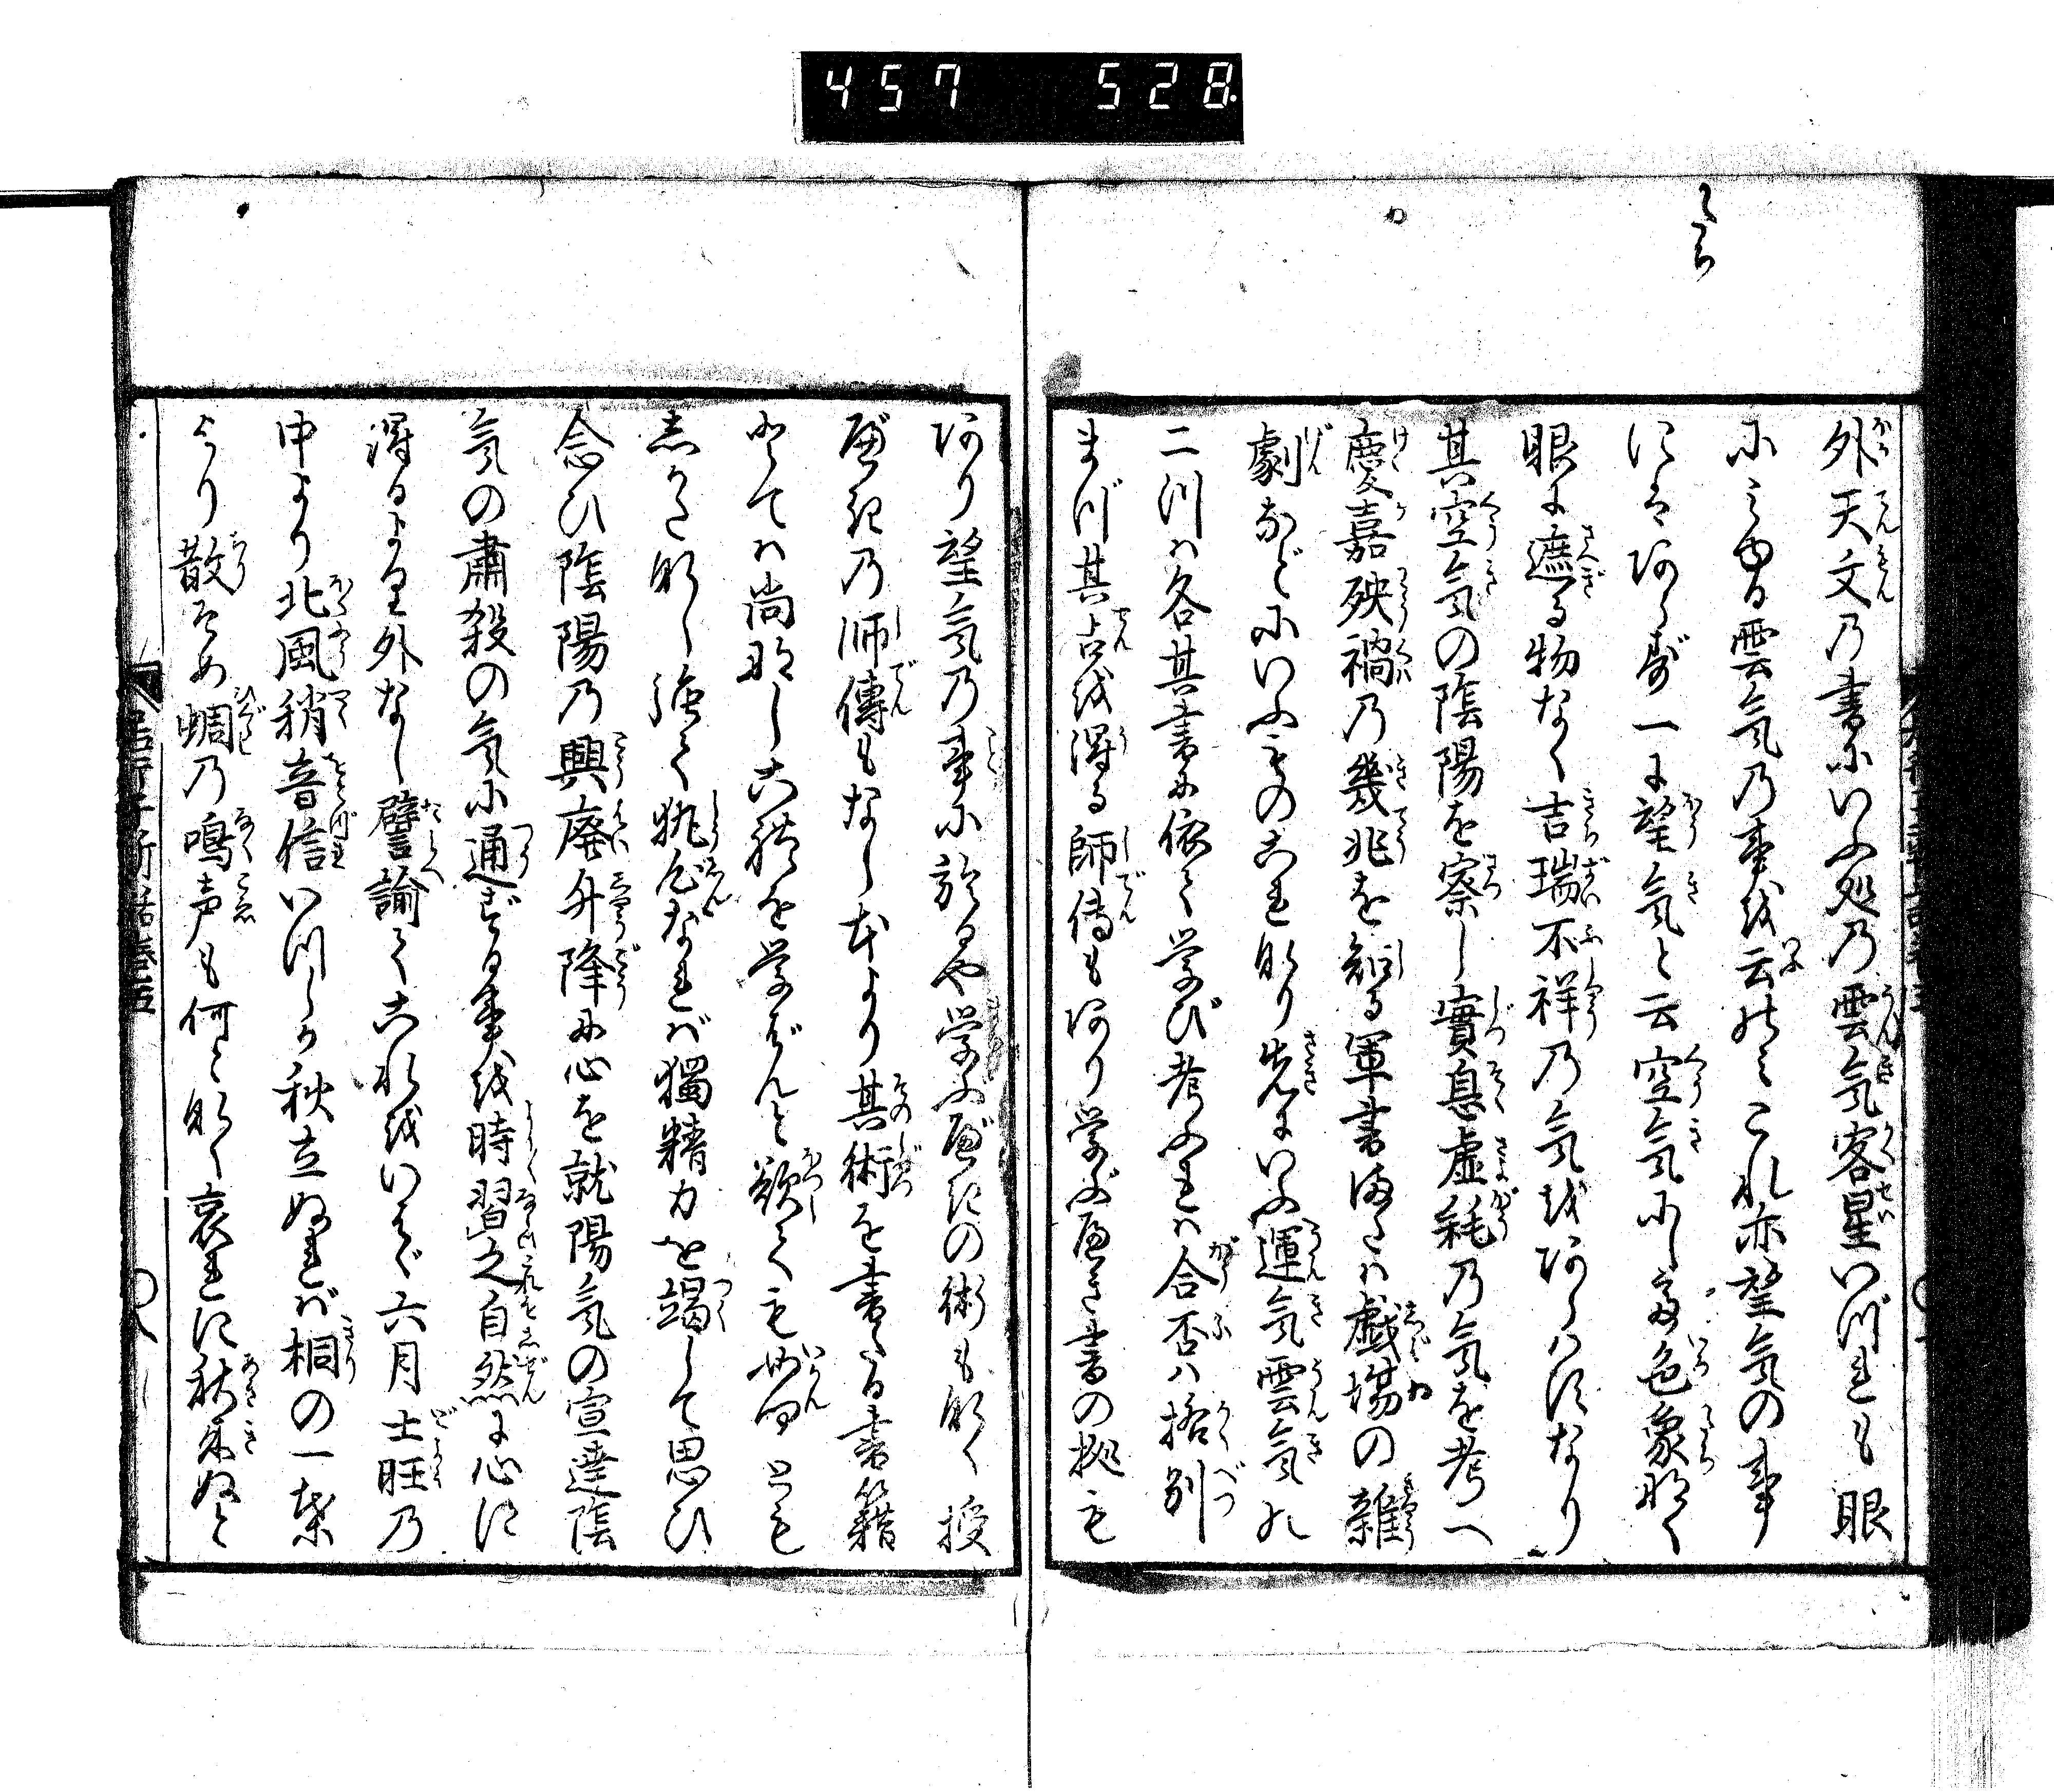 457 528
外天文乃書にいふ処乃雲気客星いづれも眼
にみゆる雲気乃事を云のみこれ亦望気の事
にはあらず一に望気と云空気にし色象なく
眼に遮る物なく吉瑞不祥乃気をあらはすなり
其空気の陰陽を察し實息虚耗乃気を考へ
慶嘉殃禍乃幾兆を知る軍書または戯場の雑
劇などにいふものこれなり先にいふ運気雲気の
二つは各其書に依て学び考ふれは合否は格別
まづ其占を得る師傳もあり学ぶべき書の拠も
あり望気乃事に於るや学ぶべきの術もなく授
べき乃師傳もなし本より其術を書たる書籍
とては尚なし古躰を学ばんと欲ても如何とも
しかたなし強て執念なれば獨精力を竭して思ひ
念ひ陰陽乃興廢升降に心を就陽気の宣達陰
気の肅殺の気に通ずる事を時習之自然に心に
得るより外なし譬諭てこれをいはゞ六月土旺乃
中より北風稍音信いつしか秋立ぬれば桐の一葉
より散そめ蜩乃鳴声も何となく哀れに秋来ぬと